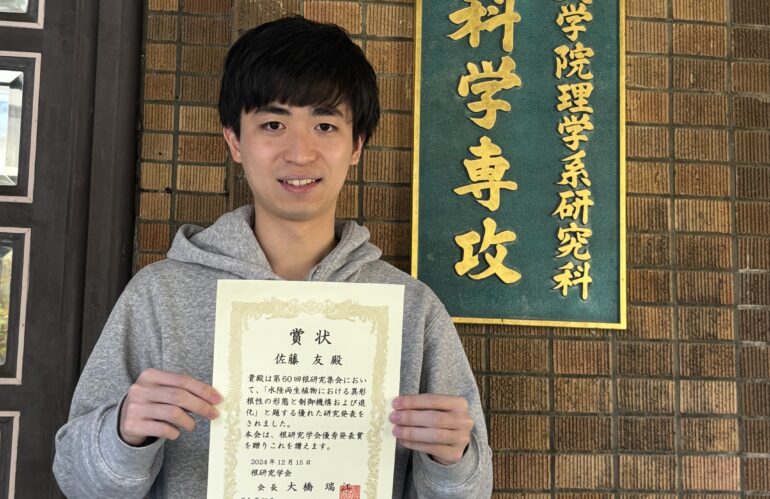 学院理学系研究科
科学専攻
賞状
佐藤 友 殿
貴殿は第60回根研究集会におい
て、「水陸両生植物における異形
根性の形態と制御機構および進
化」と題する優れた研究発表を
されました。
本会は、根研究学会優秀発表賞
を贈りこれを讃えます。
2024年12月15日
根研究学会
会長 大橋 瑞江